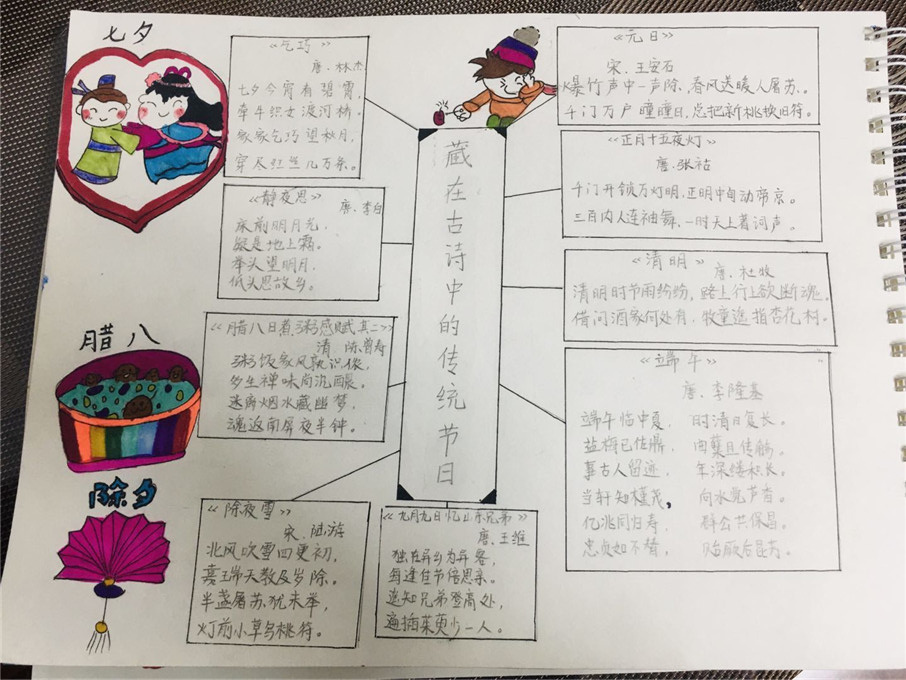 七夕
《乞巧》
唐、林杰
七夕今宵看碧霄,
牵牛织女渡河桥。
家家乞巧望秋月,
穿尽红丝几万条。
《静夜思》
唐、李白
床前明月光,
疑是地上霜。
举头望明月,
低头思故乡。
腊八
《腊八日煮粥感赋其二》
清 陈曾寿
粥饭家风熟识僧,
多生禅味
迷离烟水藏幽梦,
魂返南屏夜半钟。
除夕
《除夜雪》
宋、陆游
北风吹雪四更初,
嘉瑞天教及岁除。
半盏屠苏犹未举,
灯前小草写桃符。
藏在古诗中的传统节日
《九月九日忆山东兄弟》
唐、王维
独在异乡为异客,
每逢佳节倍思亲。
遥知兄弟登高处,
遍插茱萸少一人。
《元日》
宋、王安石
爆竹声中一声除,春风送暖人屠苏。
千门万户曈曈日,总把新桃换旧符。
《正月十五夜灯》
唐、张祜
千门开锁万灯明,正明中旬动帝京。
三百内人连袖舞,一时天上著词声。
《清明》
唐、杜牧
清明时节雨纷纷,路上行人欲断魂。
借问酒家何处有,牧童遥指杏花村。
《端午》
唐、李隆基
端午临中夏, 时清日复长。
盐梅已佐鼎, 曲糵且传觞。
事古人留迹, 年深缕积长。
当轩知槿茂, 向水觉芦香。
亿兆同归寿, 群公共保昌。
忠贞如不替, 贻厥后昆芳。